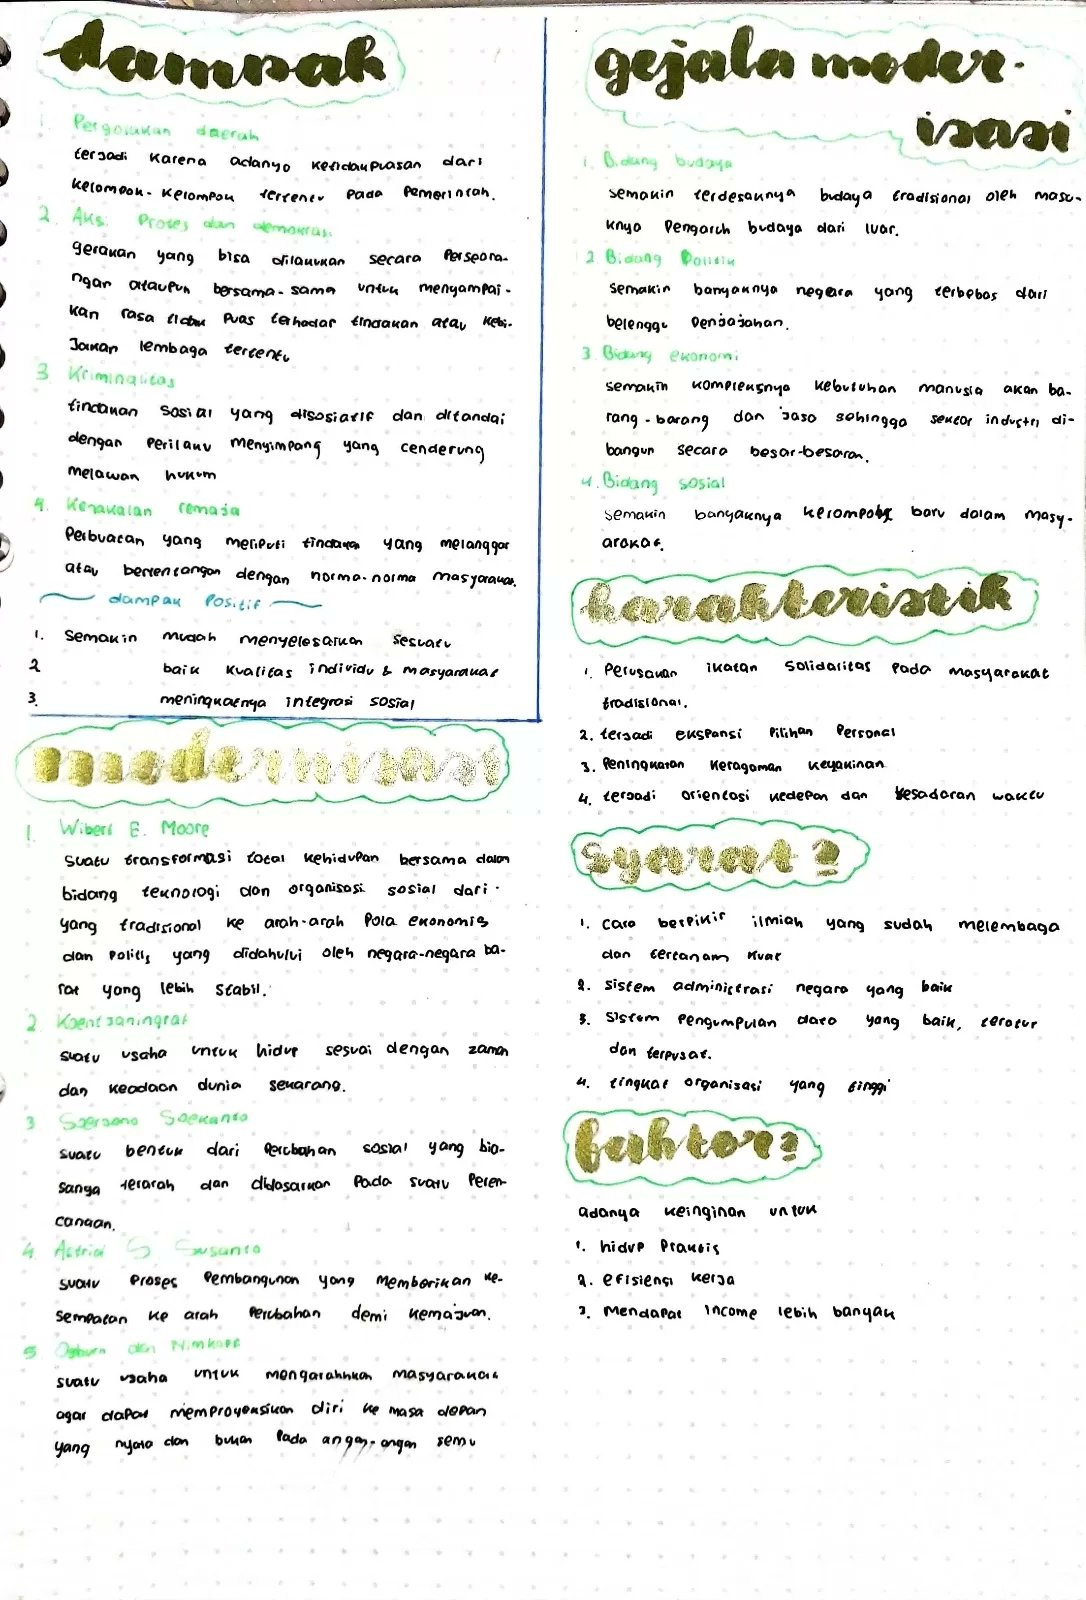 dampak
1. Pergolakan daerah
terjadi karena adanya ketidakpuasan dari
kelompok-kelompok tertentu pada pemerintah.
2. Aksi Protes dan demokrasi
gerakan yang bisa dilakukan secara perseora-
ngan ataupun bersama-sama untuk menyampai-
kan rasa tidak puas terhadap tindakan atau kebi-
jakan lembaga tertentu
3 Kriminalitas
tindakan sosial yang disosiatif dan ditandai
dengan perilaku menyimpang yang cenderung
melawan hukum
4. Kenakalan remaja
Perbuatan yang meliputi tindakan yang melanggar
atau bertentangan dengan norma-norma masyarakat.
dampak Positif
1. Semakin mudah menyelesaikan sesuatu
2 baik kualitas individu & masyarakat
3. meningkatnya integrasi sosial
modernisasi
1. Wibert E. Moore
suatu transformasi total kehidupan bersama dalam
bidang teknologi dan organisasi sosial dari
yang tradisional ke arah-arah pola ekonomis
dan politis yang didahului oleh negara-negara ba-
rat yang lebih stabil.
2 Koentjaningrat
suatu usaha untuk hidup sesuai dengan zaman
dan keadaan dunia sekarang.
3 Soerjono Soekanto
suatu bentuk dari perubahan sosial yang bia-
sanya terarah dan didasarkan pada suatu peren
canaan.
4. Astrid S. Susanto
suatu proses pembangunan yang memberikan ke-
sempatan ke arah perubahan demi kemajuan.
5 Ogburn dan Nimkoff
suatu usaha untuk mengarahkan masyarakat
agar dapat memproyeksikan diri ke masa depan
yang nyata dan bukan pada angan-angan semu
gejala moder-
isasi
1. Bidang budaya
semakin terdesaknya budaya tradisional oleh masu-
knya pengaruh budaya dari luar.
2. Bidang Politik
semakin banyaknya negara yang terbebas dari
belenggu penjajahan.
3. Bidang ekonomi
semakin kompleksnya kebutuhan manusia akan ba-
rang-barang dan jasa sehingga sektor industri di-
bangun secara besar-besaran.
4. Bidang sosial
semakin banyaknya kelompok baru dalam masy-
arakat.
karakteristik
1. Perusakan ikatan solidaritas pada masyarakat
tradisional.
2. terjadi ekspansi pilihan personal
3. Peningkatan keragaman keyakinan
4. terjadi orientasi kedepan dan kesadaran waktu
syarat?
1. cara berpikir ilmiah yang sudah melembaga
dan tertanam kuat
2. sistem administrasi negara yang baik
3. sistem pengumpulan data yang baik, teratur
dan terpusat.
4. tingkat organisasi yang tinggi
faktor?
adanya keinginan untuk
1. hidup praktis
2. efisiensi kerja
3. Mendapat income lebih banyak